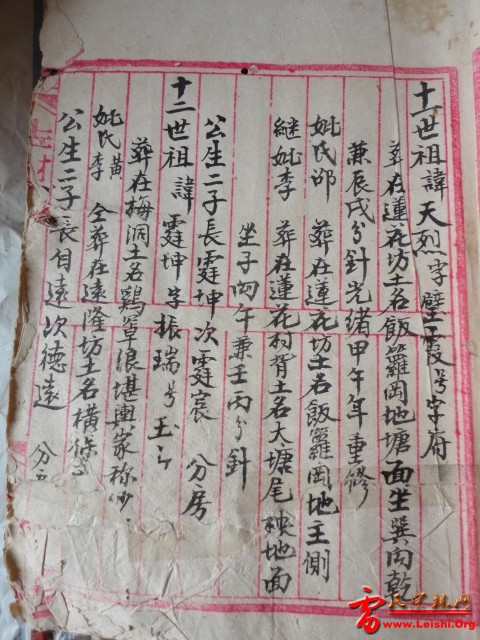 十一世祖諱天烈字璧霞号字府
葬在蓮花坊土名飯籮岡地塘面坐巽向乾
兼辰戌分針光緒甲午年重修
妣氏邵 葬在蓮花坊土名飯籮岡地主側
継妣李 葬在蓮花祠背土名大塘尾秧地面
坐子向午兼壬丙分針
公生二子長霆坤次霆宸 分房
十二世祖諱霆坤字振瑞号玉
葬在梅洞土名鷄罩浪堪輿家称
妣氏黃李 仝葬在遠隆坊土名橫
公生二子長自遠次德遠 分
雷氏宗親网
www.Leishi.Org